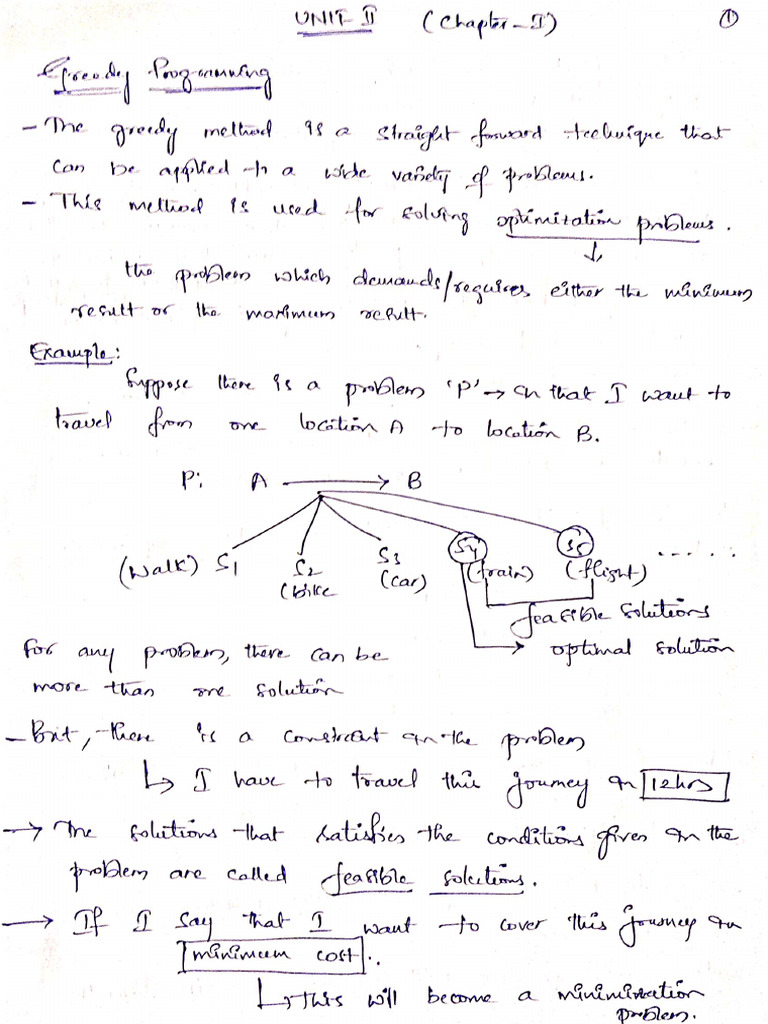 UNIT-II (Chapter-I) ①
Greedy Programming
- The greedy method is a straight forward technique that
can be applied to a wide variety of problems.
- This method is used for solving optimization problems.
the problem which demands/requires either the minimum
result or the maximum result.
Example:
Suppose there is a problem 'P' → in that I want to
travel from one location A to location B.
P: A → B
(walk) S1 S2 S3 S4 S5 ......
(bike (car) (train) (flight)
feasible solutions
optimal solution
for any problem, there can be
more than one solution
- But, there is a constraint in the problem
↳ I have to travel this journey in 12hrs
→ The solutions that satisfies the conditions given in the
problem are called feasible solutions.
→ If I say that I want to cover this journey in
minimum cost.
↳ This will become a minimization
problem.